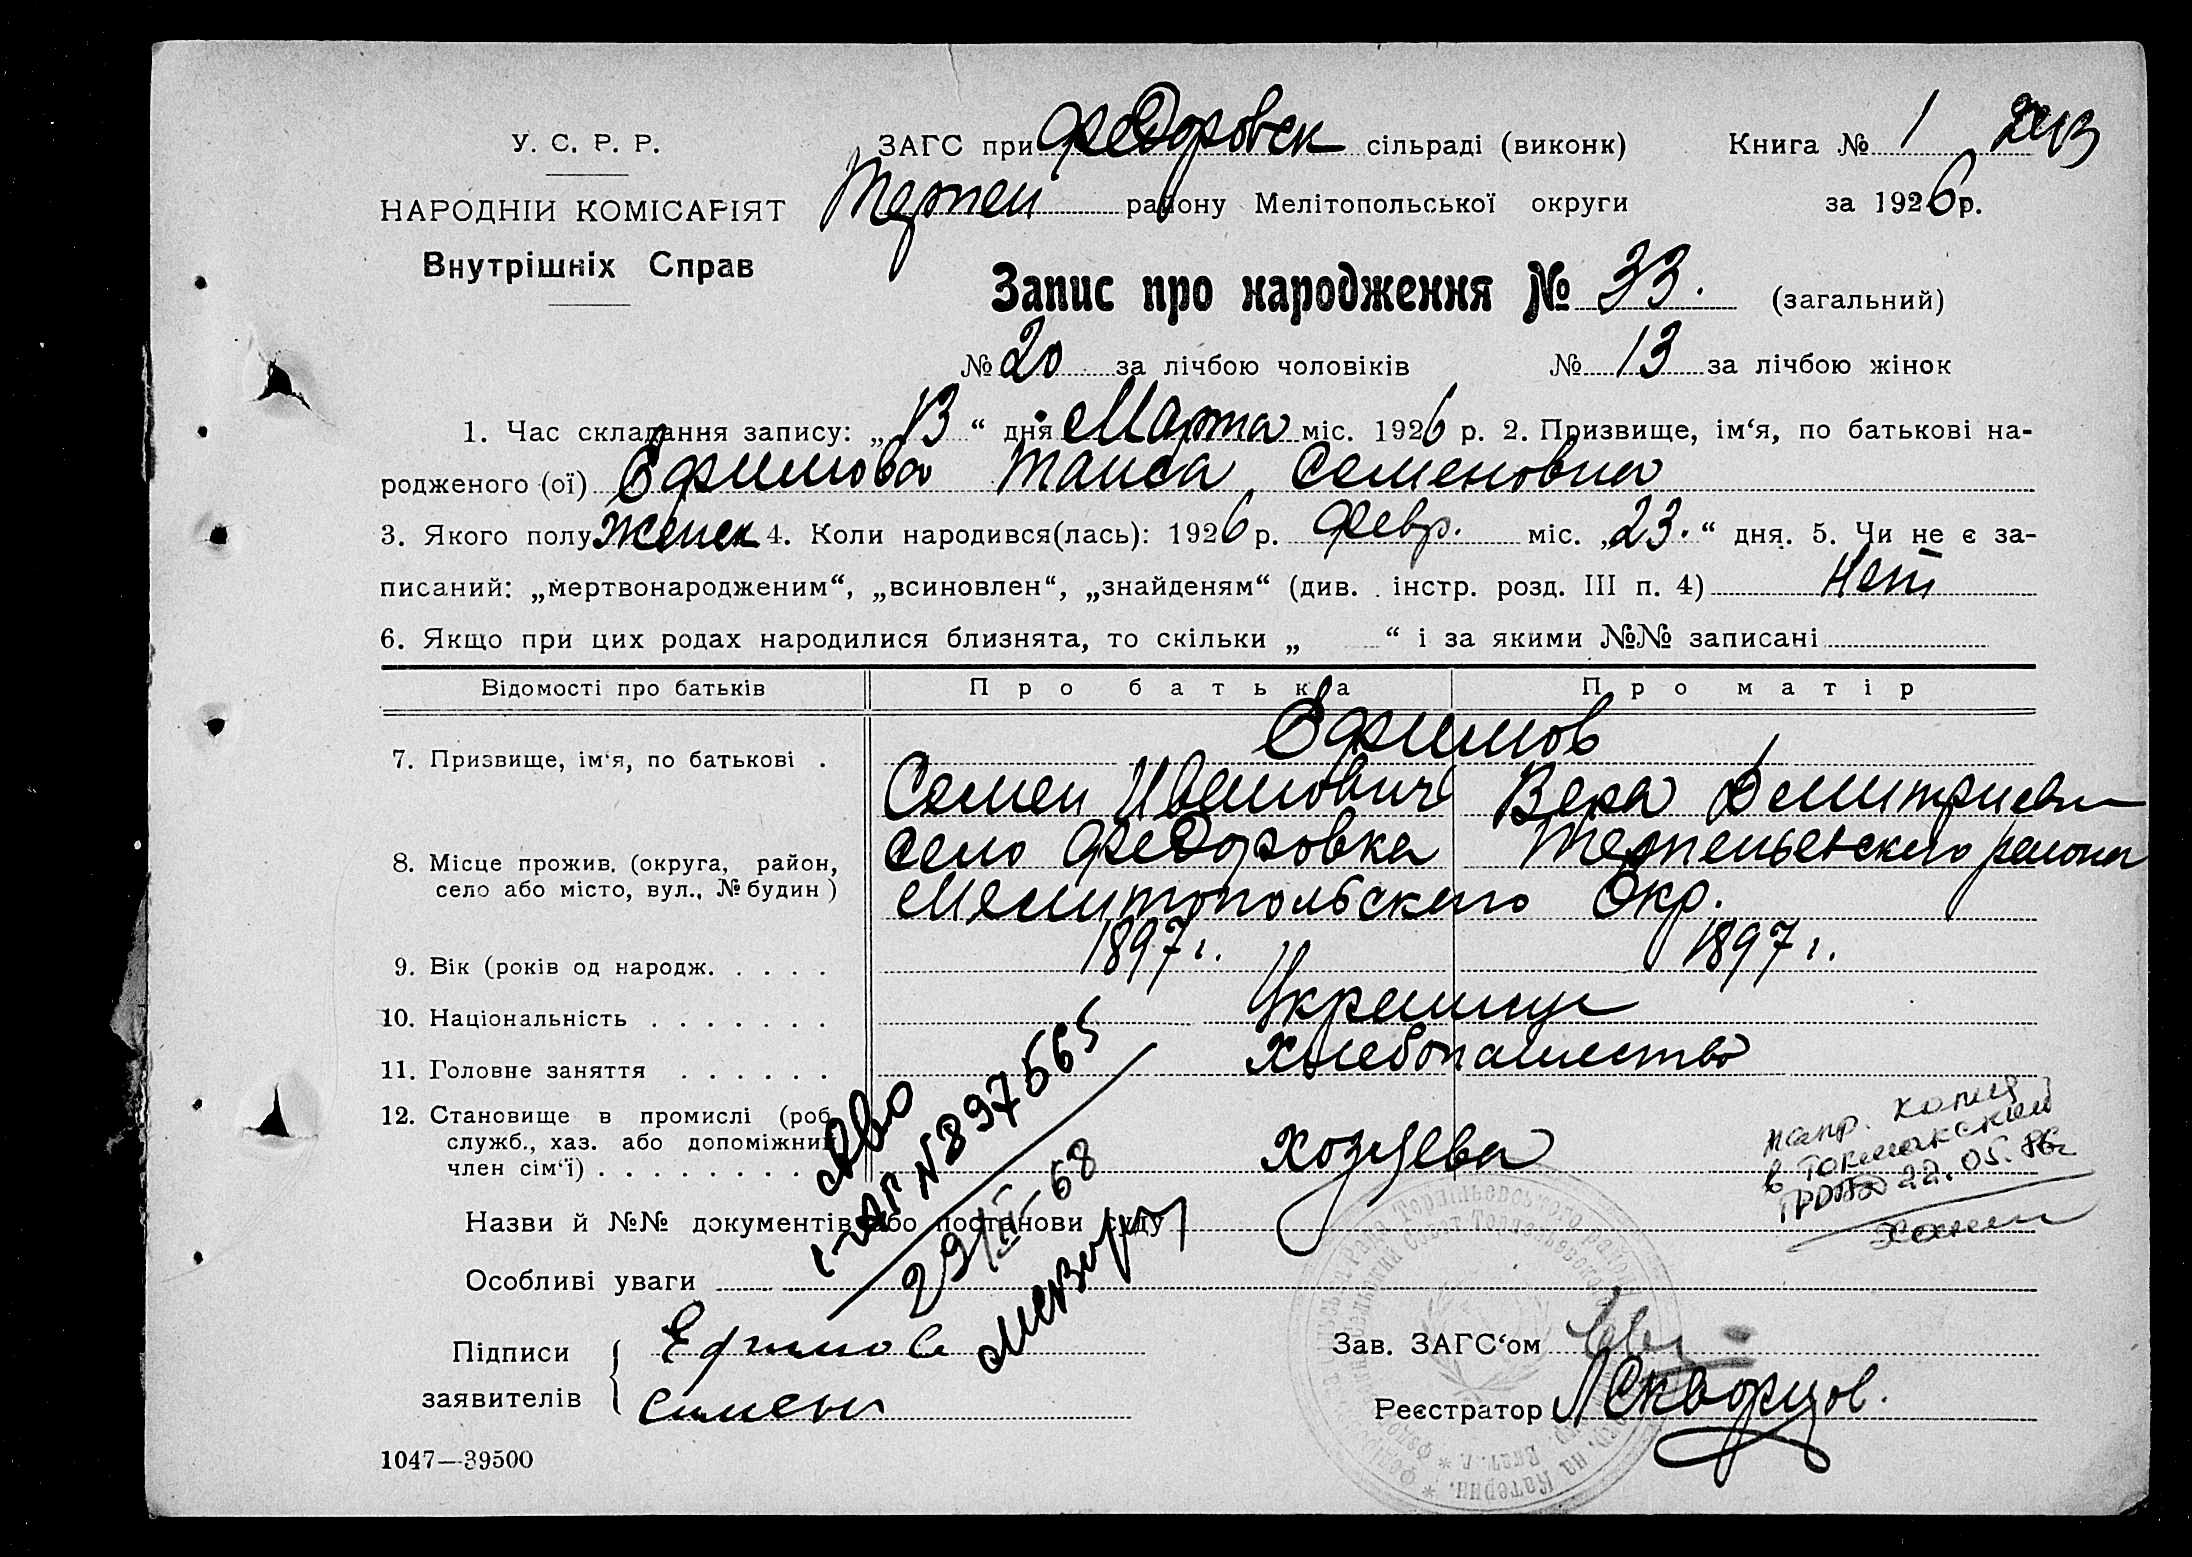 У. С. Р. Р.
НАРОДНІЙ КОМІСАРІЯТ
Внутрішніх Справ
ЗАГС при Федоровск сільраді (виконк) Книга № 1
Терпен району Мелітопольської округи за 1926 р.
Запис про народження № 33. (загальний)
№ 20 за лічбою чоловіків № 13 за лічбою жінок
1. Час складання запису: „13“ дня Марта міс. 1926 р. 2. Призвище, ім‘я, по батькові на-
родженого (ої) Ефимова Таиса Семеновна
3. Якого полу Женск 4. Коли народився(лась): 1926 р. Февр. міс. „23.“ дня. 5. Чи не є за-
писаний: „мертвонародженим“, „всиновлен“, „знайденям“ (див. інстр. розд. III п. 4) Нет
6. Якщо при цих родах народилися близнята, то скільки „ “ і за якими №№ записані
Відомості про батьків Про батька Про матір
Ефимов
7. Призвище, ім‘я, по батькові .
Семен Иванович Вера Дмитриевн
8. Місце прожив. (округа, район, село Федоровка Терпеньевского района
село або місто, вул., № будин) Мелитопольского Окр.
9. Вік (років од народж. . . . . 1897 г. 1897 г.
10. Національність . . . . . . . Украинцы
11. Головне заняття . . . . . . Хлебопашество
12. Становище в промислі (роб.
служб., хаз. або допоміжний Хозяева
член сім‘ї) . . . . . . . .
напр. копия
в Токмакский
22.05.86г
№ 897565
29/II-68
Назви й №№ документів або постанови суду
Особливі уваги
Підписи Ефимов
заявителів Симеон
Зав. ЗАГС‘ом
Реєстратор Л Скворцов.
1047—39500